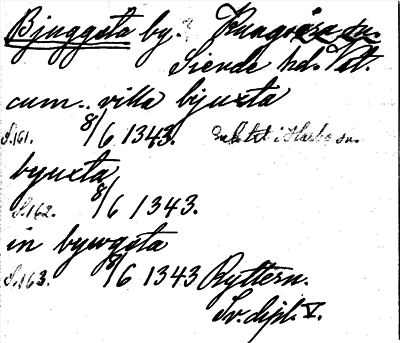 Bjuggsta by. Kungsåra sn.
Siende hd. Vstl.
cum.. villa bijuxta
S.161. 8/6 1343. i Harbo sn.
byuxta
S.162. 8/6 1343.
in bywgsta
S.163. 8/6 1343 Ryttern.
Sv. dipl. V.